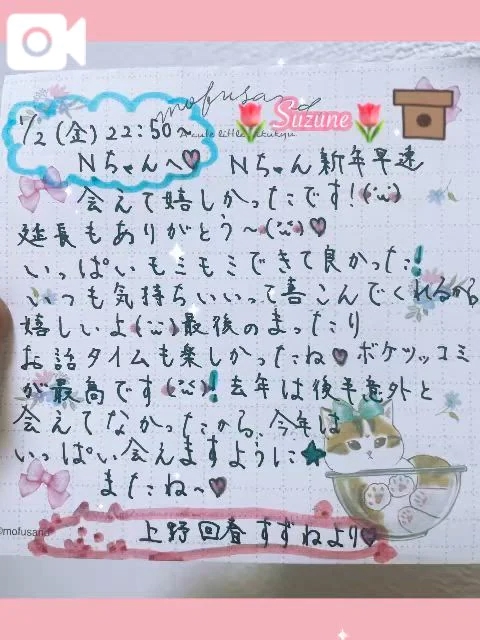 mofusand
Suzune
A cute little
1/2 (金) 22:50~
Nちゃんへ♥ Nちゃん新年早速
会えて嬉しかったです!(¨)
延長もありがとう~(¨)♥
いっぱいモミモミできて良かった!
いつも気持ちいいって喜こんでくれるから
嬉しいよ(¨)最後のまったり
お話タイムも楽しかったね♥ボケツッコミ
が最高です(¨)!去年は後半意外と
会えてなかったから、今年は
いっぱい会えますように★
またね~♥
©mofusand
上野回春すずねより♥